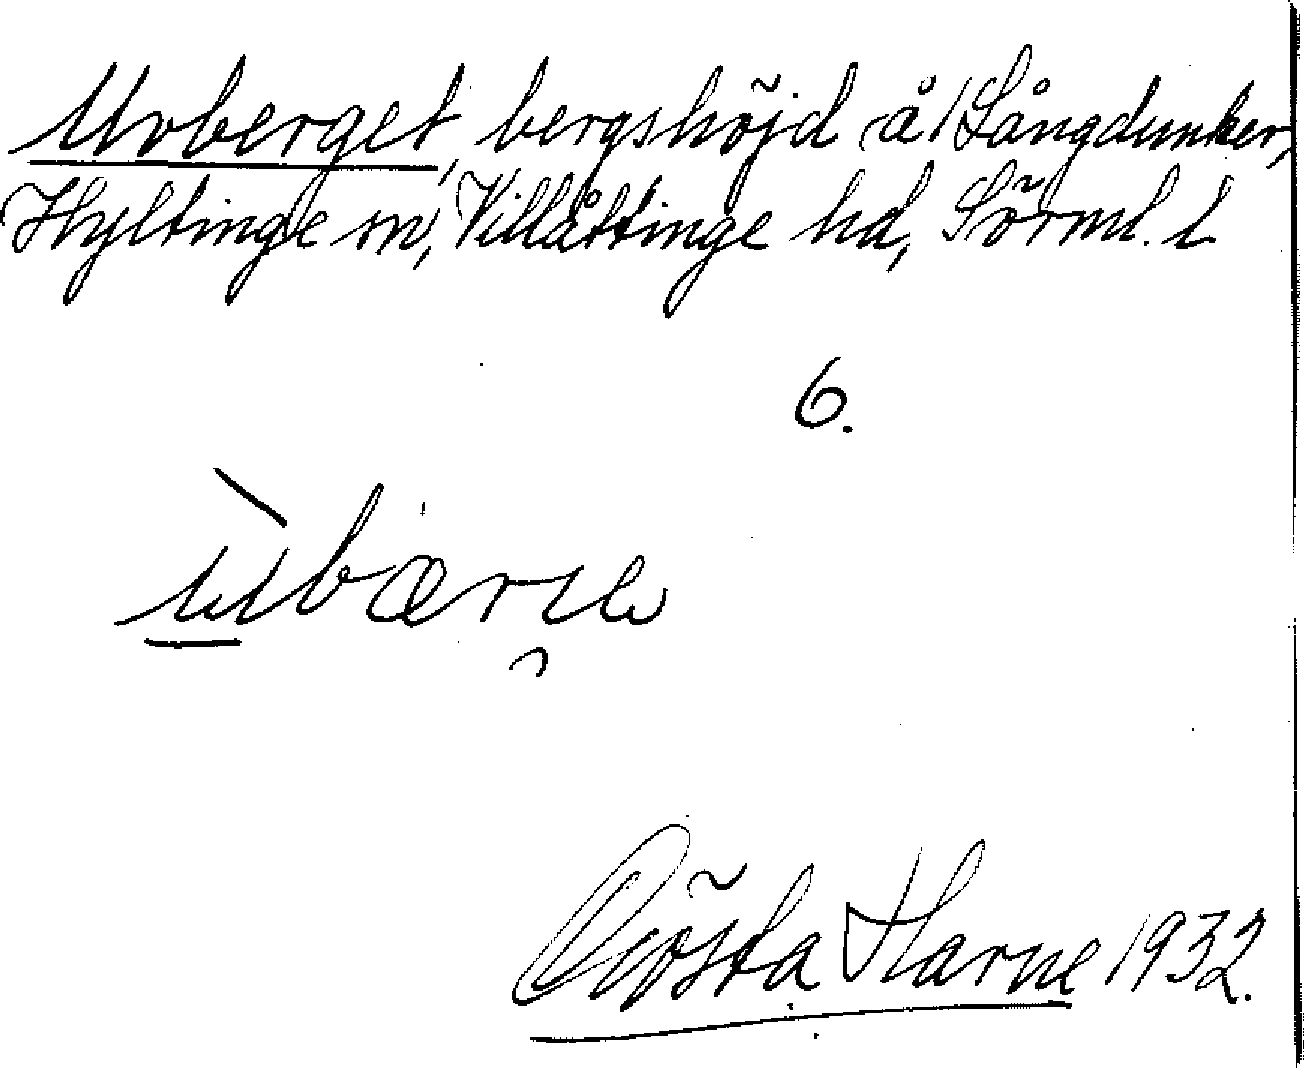 Uvberget, bergshöjd å Långdunker,
Hyltinge sn, Villåttinge hd, Sörml. l
6.
Gösta Harne 1932.